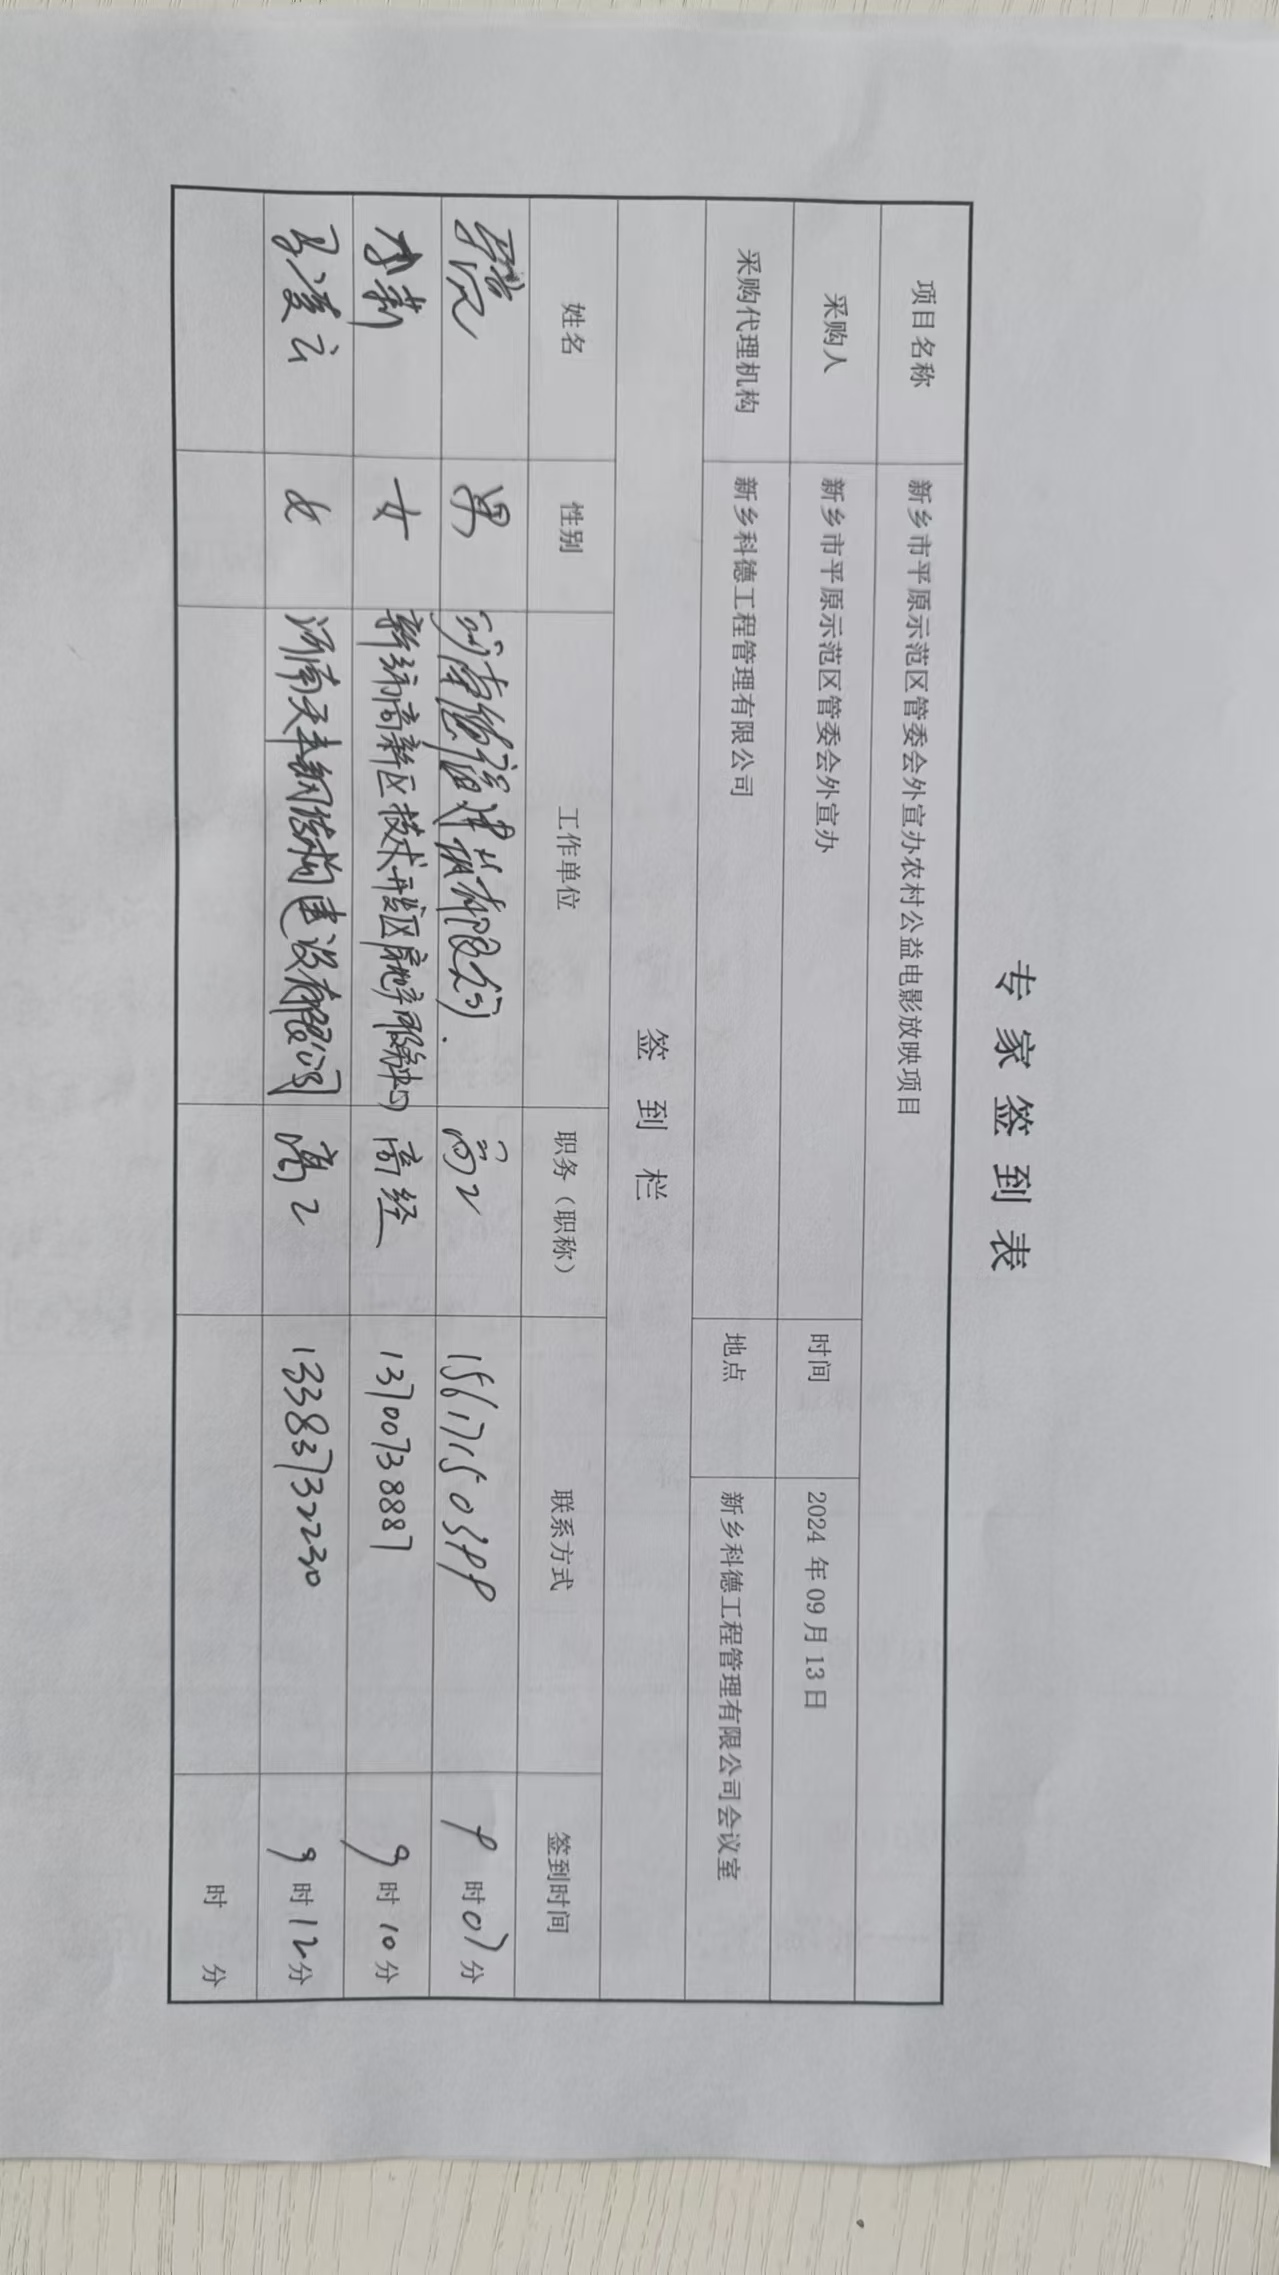 专家签到表
项目名称 新乡市平原示范区管委会外宣办农村公益电影放映项目
采购人 新乡市平原示范区管委会外宣办 时间 2024年09月13日
采购代理机构 新乡科德工程管理有限公司 地点 新乡科德工程管理有限公司会议室
签到栏
姓名 性别 工作单位 职务（职称） 联系方式 签到时间
男 高工 15617150399 9时07分
李莉 女 新乡市高新区技术开发区房地产服务中心 高经 13700738887 9时10分
女 河南天丰钢结构建设有限公司 高工 13383732230 9时12分
时 分